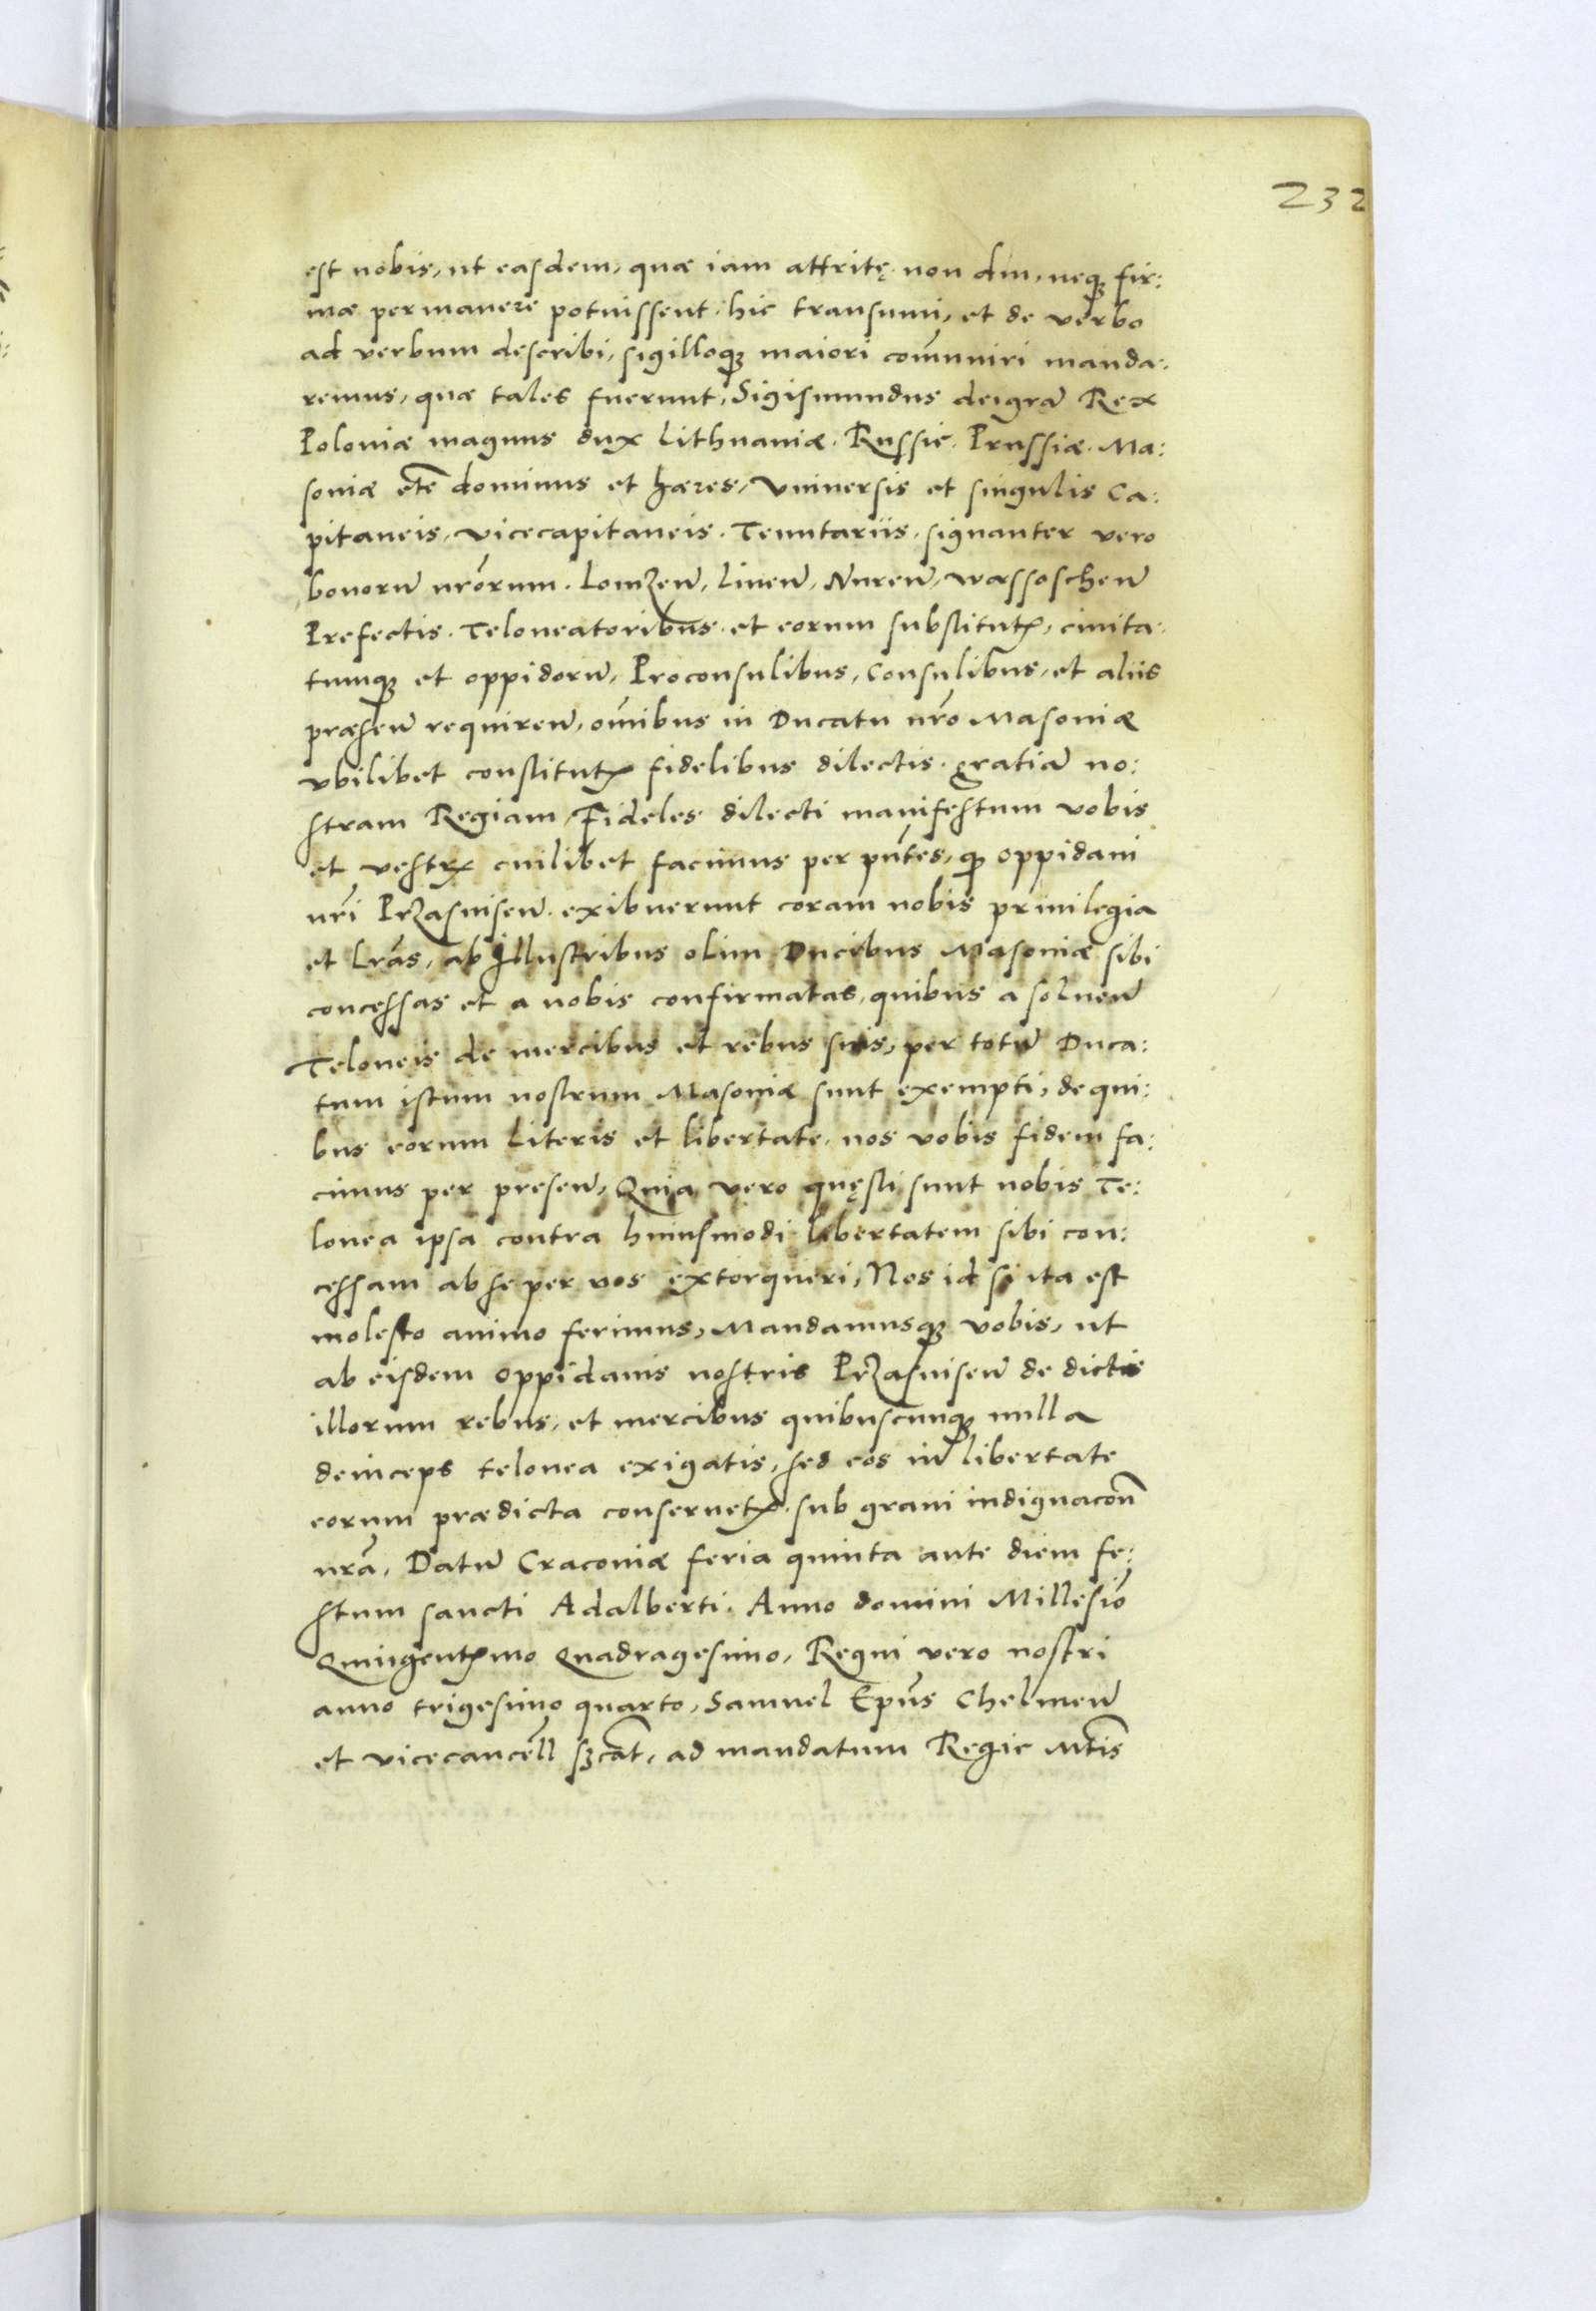 232
est nobis, ut easdem, quæ iam attritę non diu, neqꝫ fir:
mæ permanere potuissent, hic transumi, et de verbo
ad verbum describi, sigilloqꝫ maiori com̄uniri manda:
remus, quæ tales fuerunt, Sigismundus dei gr̄a Rex
Poloniæ magnus dux Lithuaniæ. Russie. Prussiæ. Ma:
soniæ et̄c dominus et hæres, Vniuersis et singulis Ca:
pitaneis, vicecapitaneis. Tenutariis. signanter vero
bonorū nr̄orum. Lomzen̄, Liuen̄, Nuren̄, wassoschen̄
Prefectis. Teloneatoribus. et eorum substitutꝭ, ciuita:
tumqꝫ et oppidorū, Proconsulibus, Consulibus, et aliis
præsen̄ requiren̄, om̄ibus in Ducatu nr̄o Masoniæ
vbilibet constitutꝭ fidelibus dilectis. gratiā no:
stram Regiam, Fideles dilecti manifestum vobis
et vestrꝭ cuilibet facimus per pn̄tes, qꝫ oppidani
nr̄i Przasnisen̄. exibuerunt coram nobis priuilegia
et Lr̄as, ab Illustribus olim Ducibus Masoniæ sibi
concessas et a nobis confirmatas, quibus a soluen̄
Teloneis de mercibus et rebus suis, per totū Duca:
tum istum nostrum Masoniæ sunt exempti, de qui:
bus eorum Literis et libertate, nos vobis fidem fa:
cimus per presen̄, Quia vero quęsti sunt nobis Te:
lonea ipsa contra huiusmodi libertatem sibi con:
cessam ab se per vos extorqueri, Nos id si ita est
molesto animo ferimus, Mandamusqꝫ vobis, ut
ab eisdem oppidanis nostris Przasnisen̄ de dictis
illorum rebus, et mercibus quibuscunqꝫ nulla
deinceps telonea exigatis, sed eos in libertate
eorum prædicta conseruetꝭ. sub graui indignacon̄
nr̄a, Datū Cracoviæ feria quinta ante diem fe:
stum sancti Adalberti. Anno domini Millesio̅
Quingentꝭmo Quadragesimo, Regni vero nostri
anno trigesimo quarto, Samuel Ep̄us Chelmen̄
et vicecancell̄ sꝫcāt, ad mandatum Regie Mt̄is